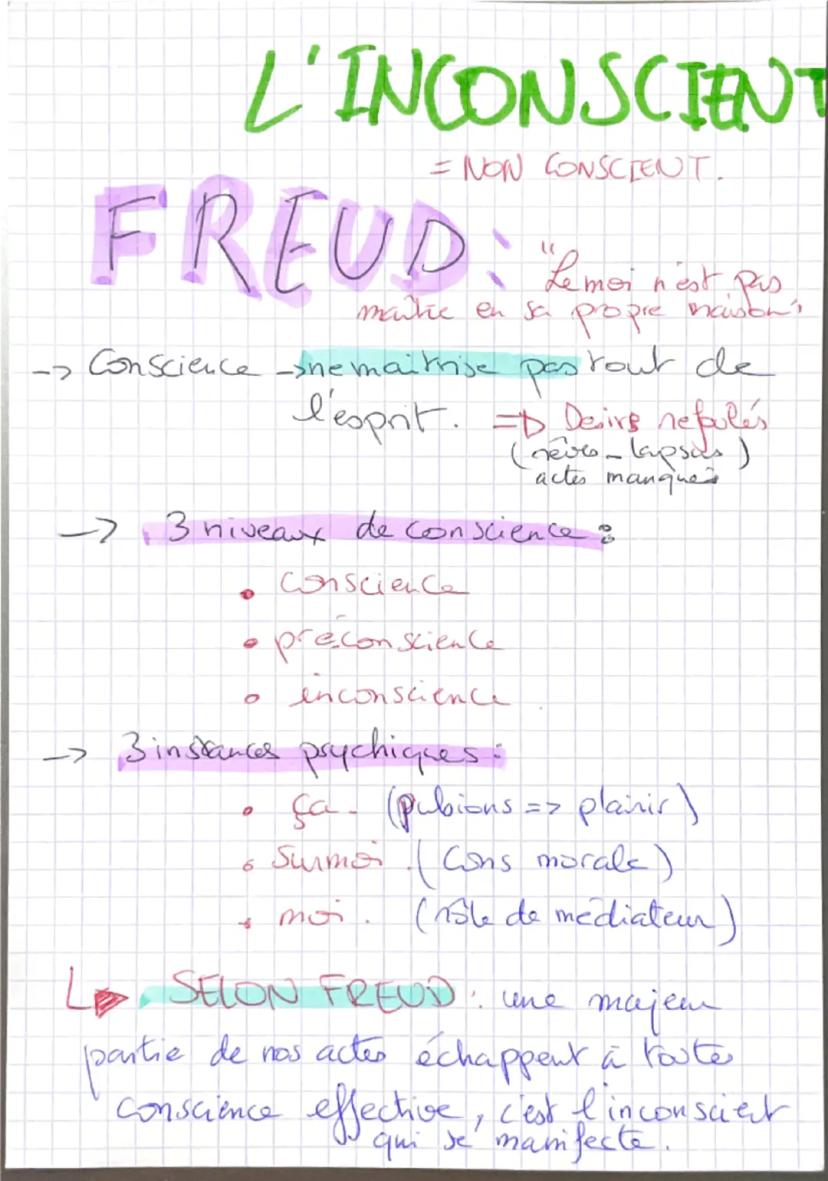 L'INCONSCIENT
= NON CONSCIENT.
FREUD: "Le moi n'est pas
maître en sa propre maison"
-> Conscience -> ne maitrise pas tout de
l'esprit. => Desirs refoulés
(rêves - lapsus)
actes manqués
-> 3 niveaux de conscience :
• conscience
• préconscience
• inconscience
-> 3 instances psychiques :
• ça. (pulsions => plaisir)
• Surmoi. (Cons morale)
• moi. (rôle de médiateur)
SELON FREUD : une majeur
partie de nos actes échappent à toute
conscience effective, c'est l'inconscient
qui se manifecte.